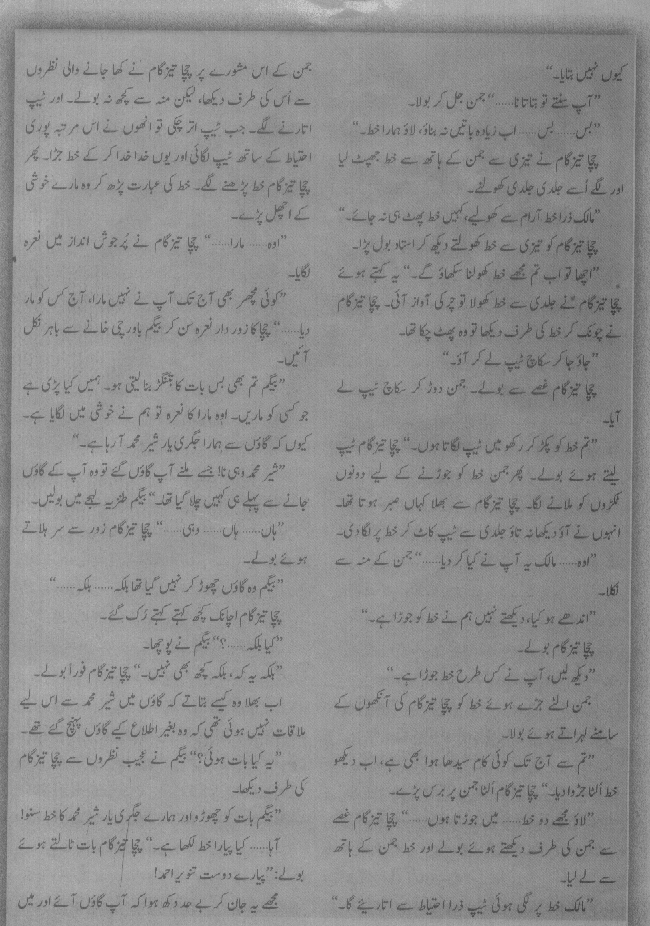 کیوں نہیں بتایا۔“
”آپ سنتے تو بتاتا نا......“ جمن جل کر بولا۔
”بس...... بس...... اب زیادہ باتیں نہ بناؤ، لاؤ ہمارا خط۔“
چچا تیز گام نے تیزی سے جمن کے ہاتھ سے خط جھپٹ لیا
اور لگے اُسے جلدی جلدی کھولنے۔
”مالک ذرا خط آرام سے کھولیے، کہیں خط پھٹ ہی نہ جائے۔“
چچا تیز گام کو تیزی سے خط کھولتے دیکھ کر استاد بول پڑا۔
”اچھا تو اب تم مجھے خط کھولنا سکھاؤ گے۔“ یہ کہتے ہوئے
چچا تیز گام نے جلدی سے خط کھولا تو چر کی آواز آئی۔ چچا تیز گام
نے چونک کر خط کی طرف دیکھا تو وہ پھٹ چکا تھا۔
”جاؤ جا کر سکاچ ٹیپ لے کر آؤ۔“
چچا تیز گام غصے سے بولے۔ جمن دوڑ کر سکاچ ٹیپ لے
آیا۔
”تم خط کو پکڑ کر رکھو میں ٹیپ لگاتا ہوں۔“ چچا تیز گام ٹیپ
لیتے ہوئے بولے۔ پھر جمن خط کو جوڑنے کے لیے دونوں
ٹکڑوں کو ملانے لگا۔ چچا تیز گام سے بھلا کہاں صبر ہوتا تھا۔
انہوں نے آؤ دیکھا نہ تاؤ جلدی سے ٹیپ کاٹ کر خط پر لگا دی۔
”اوہ...... مالک یہ آپ نے کیا کر دیا......“ جمن کے منہ سے
نکلا۔
”اندھے ہو کیا، دیکھتے نہیں ہم نے خط کو جوڑا ہے۔“
چچا تیز گام بولے۔
”دیکھ لیں، آپ نے کس طرح خط جوڑا ہے۔“
جمن الٹے جڑے ہوئے خط کو چچا تیز گام کی آنکھوں کے
سامنے لہراتے ہوئے بولا۔
”تم سے آج تک کوئی کام سیدھا ہوا بھی ہے، اب دیکھو
خط اُلٹا جڑوا دیا۔“ چچا تیز گام اُلٹا جمن پر برس پڑے۔
”لاؤ مجھے دو خط...... میں جوڑتا ہوں......“ چچا تیز گام غصے
سے جمن کی طرف دیکھتے ہوئے بولے اور خط جمن کے ہاتھ
سے لے لیا۔
”مالک خط پر لگی ہوئی ٹیپ ذرا احتیاط سے اتاریئے گا۔“
جمن کے اس مشورے پر چچا تیز گام نے کھا جانے والی نظروں
سے اُس کی طرف دیکھا، لیکن منہ سے کچھ نہ بولے۔ اور ٹیپ
اتارنے لگے۔ جب ٹیپ اتر چکی تو انھوں نے اس مرتبہ پوری
احتیاط کے ساتھ ٹیپ لگائی اور یوں خدا خدا کر کے خط جڑا۔ پھر
چچا تیز گام خط پڑھنے لگے۔ خط کی عبارت پڑھ کر وہ مارے خوشی
کے اچھل پڑے۔
”اوہ...... مارا......“ چچا تیز گام نے پُر جوش انداز میں نعرہ
لگایا۔
”کوئی مچھر بھی آج تک آپ نے نہیں مارا، آج کس کو مار
دیا......“ چچا کا زور دار نعرہ سن کر بیگم باورچی خانے سے باہر نکل
آئیں۔
”بیگم تم بھی بس بات کا بتنگڑ بنا لیتی ہو۔ ہمیں کیا پڑی ہے
جو کسی کو ماریں۔ اوہ مارا کا نعرہ تو ہم نے خوشی میں لگایا ہے۔
کیوں کہ گاؤں سے ہمارا جگری یار شیر محمد آ رہا ہے۔“
”شیر محمد وہی نا! جسے ملنے آپ گاؤں گئے تو وہ آپ کے گاؤں
جانے سے پہلے ہی کہیں چلا گیا تھا۔“ بیگم طنزیہ لہجے میں بولیں۔
”ہاں...... ہاں...... وہی......“ چچا تیز گام زور سے سر ہلاتے
ہوئے بولے۔
”بیگم وہ گاؤں چھوڑ کر نہیں گیا تھا بلکہ...... بلکہ......“
چچا تیز گام اچانک کچھ کہتے کہتے رُک گئے۔
”کیا بلکہ......؟“ بیگم نے پوچھا۔
”بلکہ یہ کہ، بلکہ کچھ بھی نہیں۔“ چچا تیز گام فوراً بولے۔
اب بھلا وہ کیسے بتاتے کہ گاؤں میں شیر محمد سے اس لیے
ملاقات نہیں ہوئی تھی کہ وہ بغیر اطلاع کیے گاؤں پہنچ گئے تھے۔
”یہ کیا بات ہوئی؟“ بیگم نے عجیب نظروں سے چچا تیز گام
کی طرف دیکھا۔
”بیگم بات کو چھوڑو اور ہمارے جگری یار شیر محمد کا خط سنو!
آہا...... کیا پیارا خط لکھا ہے۔“ چچا تیز گام بات ٹالتے ہوئے
بولے: ”پیارے دوست تنویر احمد!
مجھے یہ جان کر بے حد دکھ ہوا کہ آپ گاؤں آئے اور میں